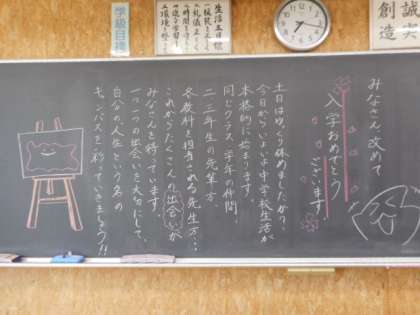 誠実
創造
生活五目標
学級目標
みなさん 改めて
入学おめでとう
ございます。
土日はゆっくり休めましたか?
今日からいよいよ中学校生活が
本格的に始まります。
同じクラス、学年の仲間
二、三年生の先輩方
各教科を担当される先生方…
これからたくさんの出会いが
みなさんを待っています。
一つ一つの出会いを大切にして、
自分の人生という名の
キャンバスを彩っていきましょう!!